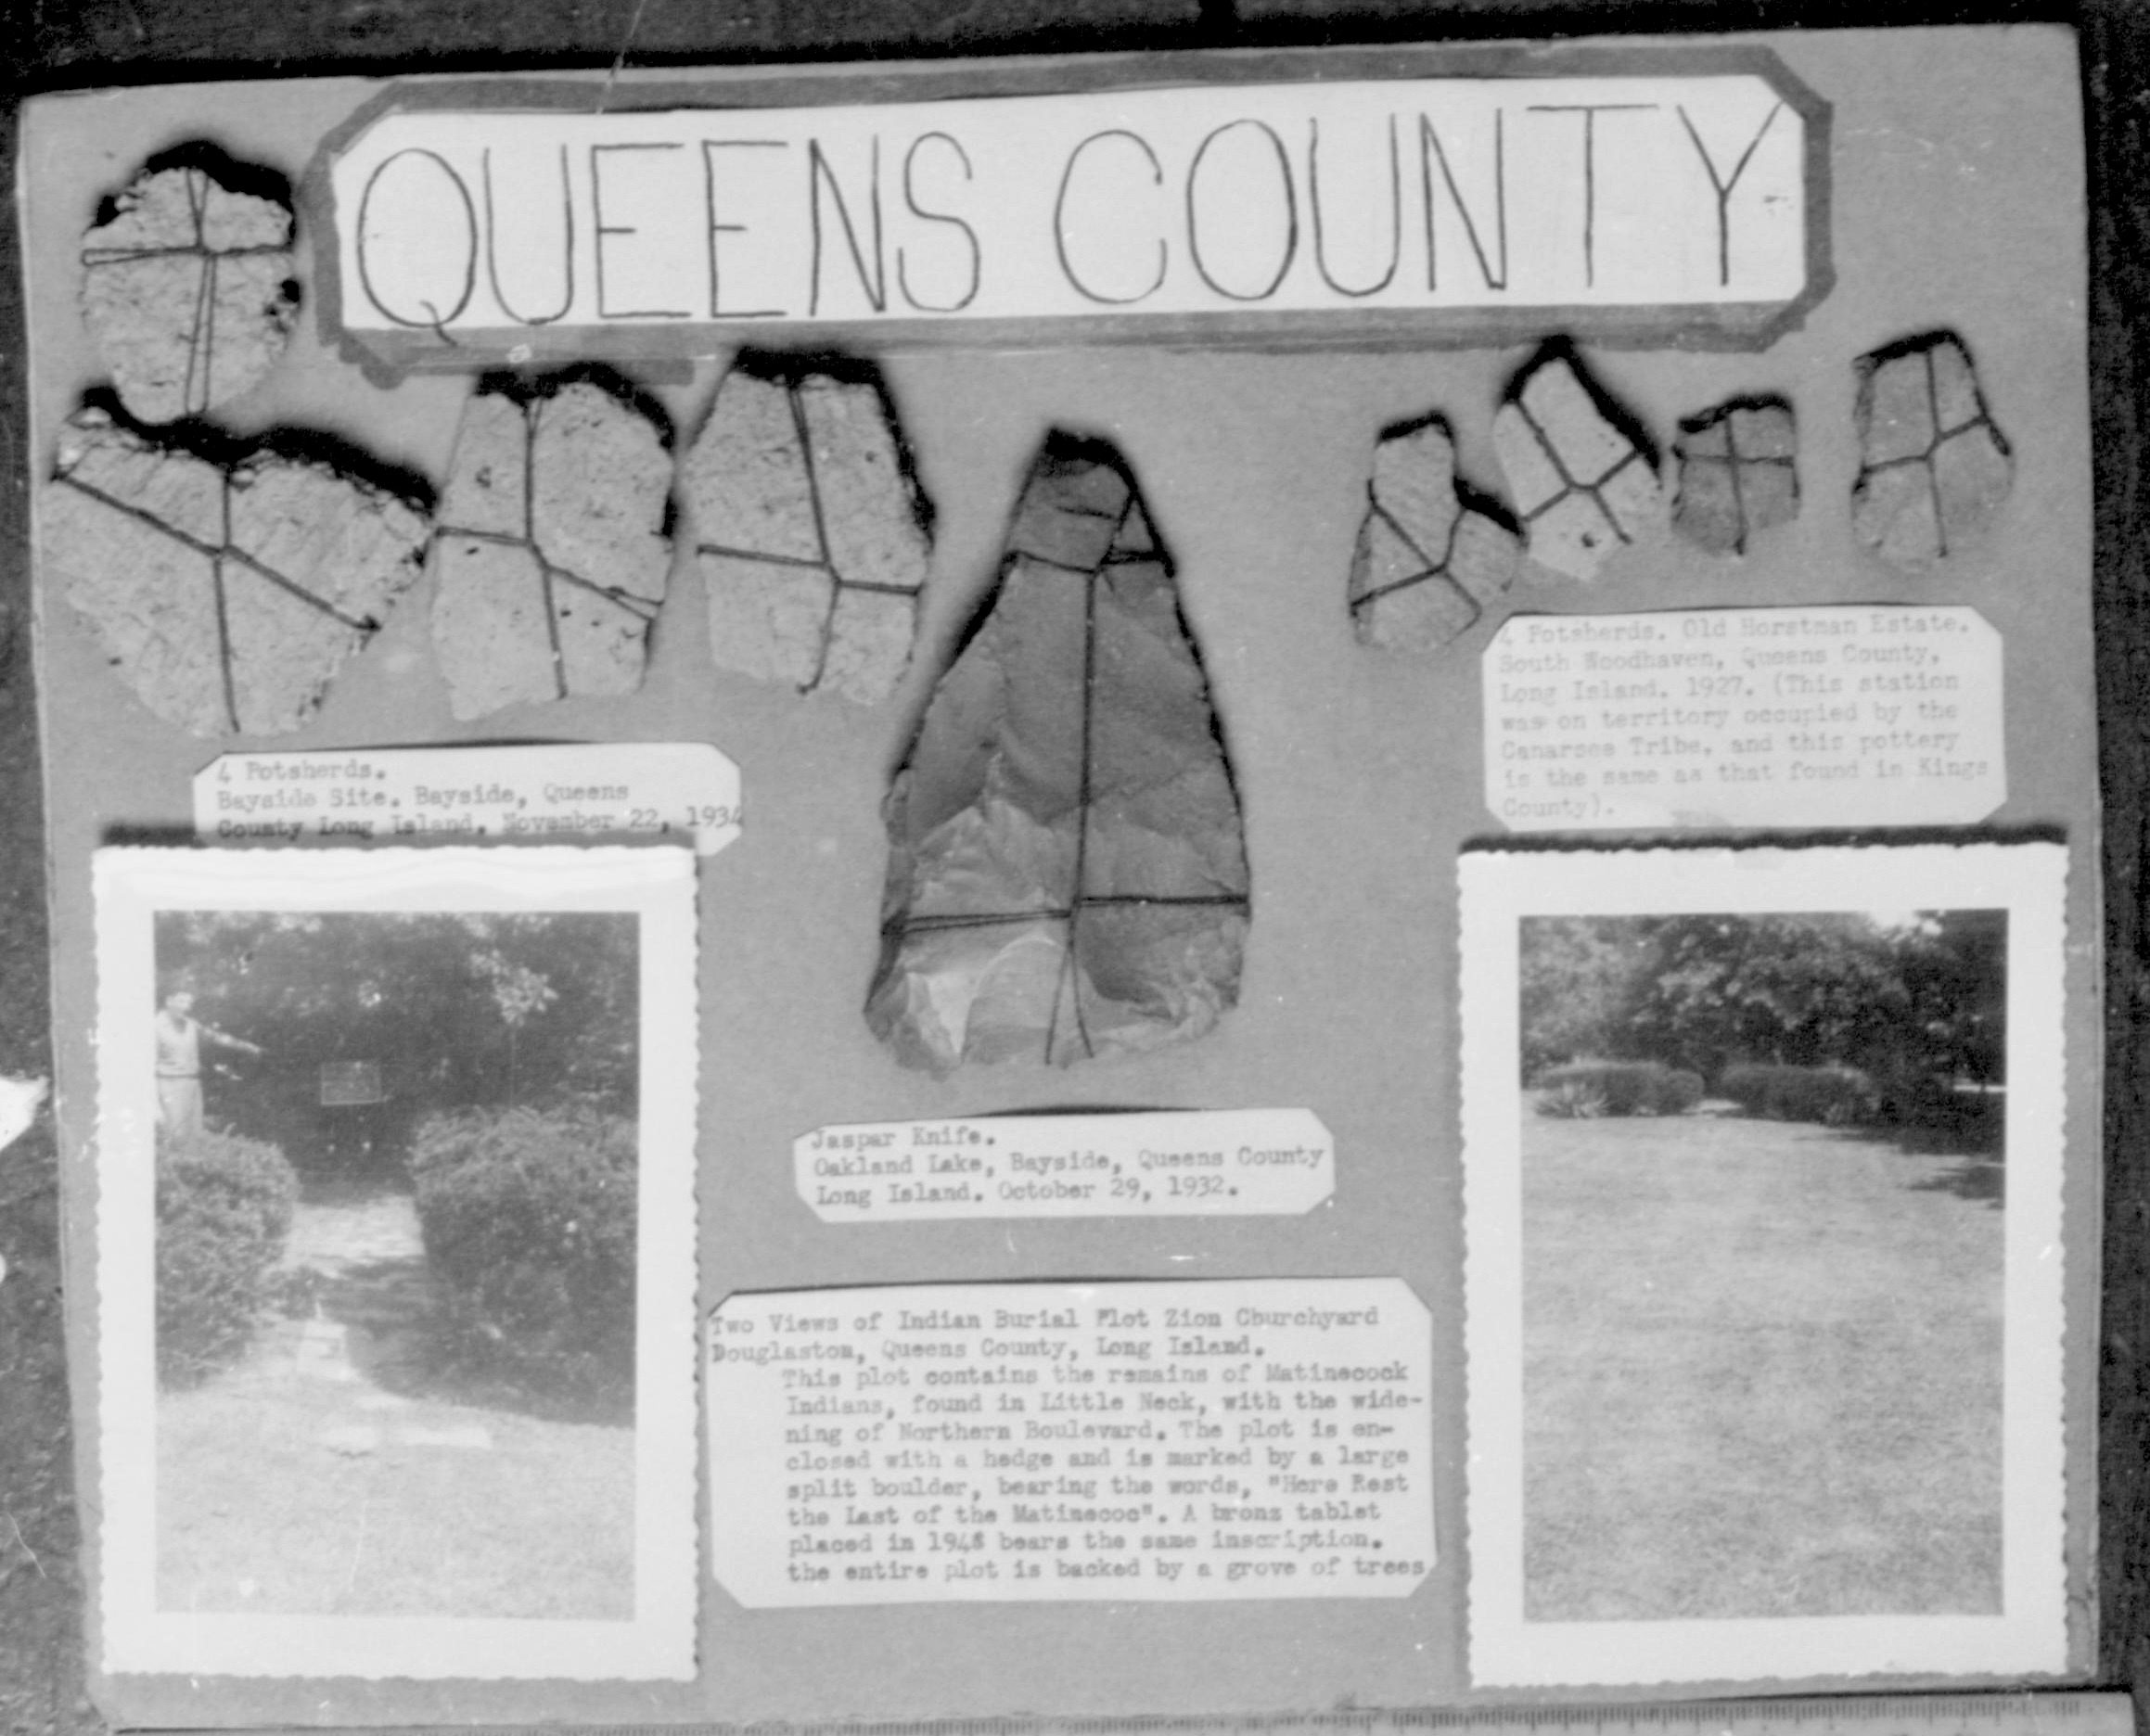 QUEENS COUNTY
4 Potsherds. Old Horstman Estate.
South Woodhaven, Queens County,
Long Island. 1927. (This station
was on territory occupied by the
Canarsee Tribe, and this pottery
is the same as that found in Kings
County).
4 Potsherds.
Bayside Site. Bayside, Queens
County Long Island, November 22, 1934
Jaspar Knife.
Oakland Lake, Bayside, Queens County
Long Island. October 29, 1932.
Two Views of Indian Burial Plot Zion Churchyard
Douglaston, Queens County, Long Island.
This plot contains the remains of Matinecock
Indians, found in Little Neck, with the wide-
ning of Northern Boulevard. The plot is en-
closed with a hedge and is marked by a large
split boulder, bearing the words, "Here Rest
the Last of the Matinecoc". A bronz tablet
placed in 1948 bears the same inscription.
the entire plot is backed by a grove of trees